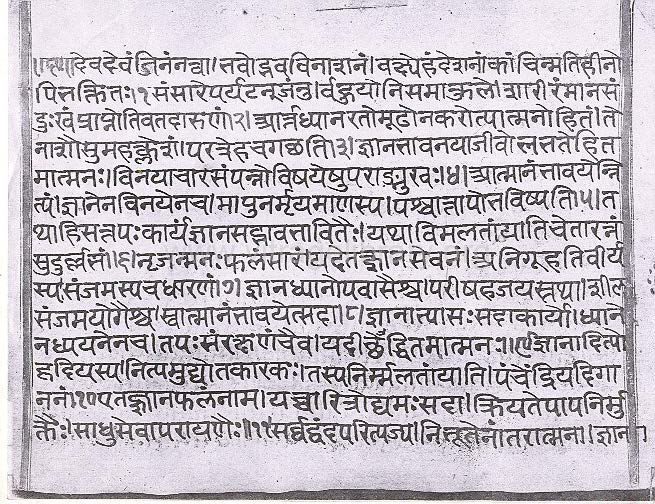 ॥६०॥देवदेवंजिनंनत्वा।भवोद्भवविनाशनं।वक्ष्येहंदेशनांकांचिन्मतिहीनो
पिभक्तितः।१संसारेपर्यटनजंतुर्बहुयोनिसमाकुले।शारीरंमानसं
दुःखंप्राप्नोतिवतदारुणं२।आर्त्तध्यानरतोमूढोनकरोत्यात्मनोहितं।ते
नाशौसुमहक्लेशं।परत्रेहचगछति।३।ज्ञानभावनयाजीवोलभतेहित
मात्मनः।विनयाचारसंपन्नोविषयेषुपराङ्मुखः।४।आत्मानंभावयेन्नि
त्यं।ज्ञानेनविनयेनच।मापुनर्मृयमाणस्य।पश्चात्तापोभविष्यति।५।त
थाहिसत्तपःकार्यंज्ञानसद्भावभावितैः।यथाविमलतांयातिचेतारत्नं
सुदुर्लभं।६।नृजन्मनःफलंसारं।यदेतद्ज्ञानसेवनं।अनिगूहतिवीर्य
स्य।संजमस्यचधारणं७।ज्ञानध्यानोपवासैश्च।परीषहजयैस्तथा।शील
संजमयोगैश्च।स्वात्मानंभावयेत्सदा।८।ज्ञानाभ्यासःसदाकार्यो।ध्याने
नध्ययनेनच।तपःसंरक्षणंचैव।यदीछेद्धितमात्मनः।९ज्ञानादित्यो
हृदियस्य।नित्यमुद्योतकारकः।तस्यनिर्मलतांयाति।पंचेंद्रियदिगा
ननं।१०एतद्ज्ञानफलंनाम।यच्चारित्रोद्यमःसदा।क्रियतेपापनिर्मु
क्तैः।साधुसेवापरायणैः।११सर्वद्वंद्वंपरित्यज्य।निभृतेनांतरात्मना।ज्ञाना